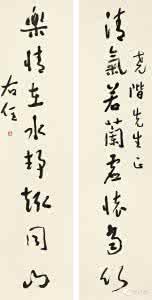 堯階先生正
清氣若蘭虛懷當竹
樂情在水靜趣同山
右任